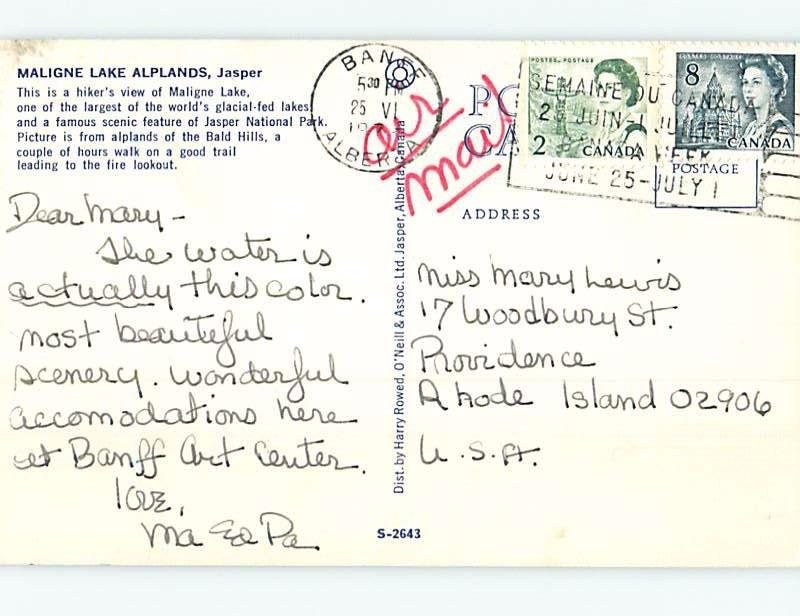 MALIGNE LAKE ALPLANDS, Jasper
This is a hiker's view of Maligne Lake,
one of the largest of the world's glacial-fed lakes
and a famous scenic feature of Jasper National Park.
Picture is from alplands of the Bald Hills, a
couple of hours walk on a good trail
leading to the fire lookout.
Dear Mary -
The water is
actually this color.
most beautiful
scenery. Wonderful
accomodations here
at Banff Art Center.
love,
Ma & Pa.
BANFF
5 30 PM
25 VI
ALBERTA
air
mail
PO
CA
POSTES POSTAGE
2
CANADA
8
CANADA
SEMAINE DU CANADA
25 JUIN-1 JUILLET
CANADA WEEK
JUNE 25-JULY 1
POSTAGE
ADDRESS
Miss Mary Lewis
17 Woodbury St.
Providence
Rhode Island 02906
U.S.A.
Dist. by Harry Rowed, O'Neill & Assoc. Ltd. Jasper, Alberta, Canada
S-2643